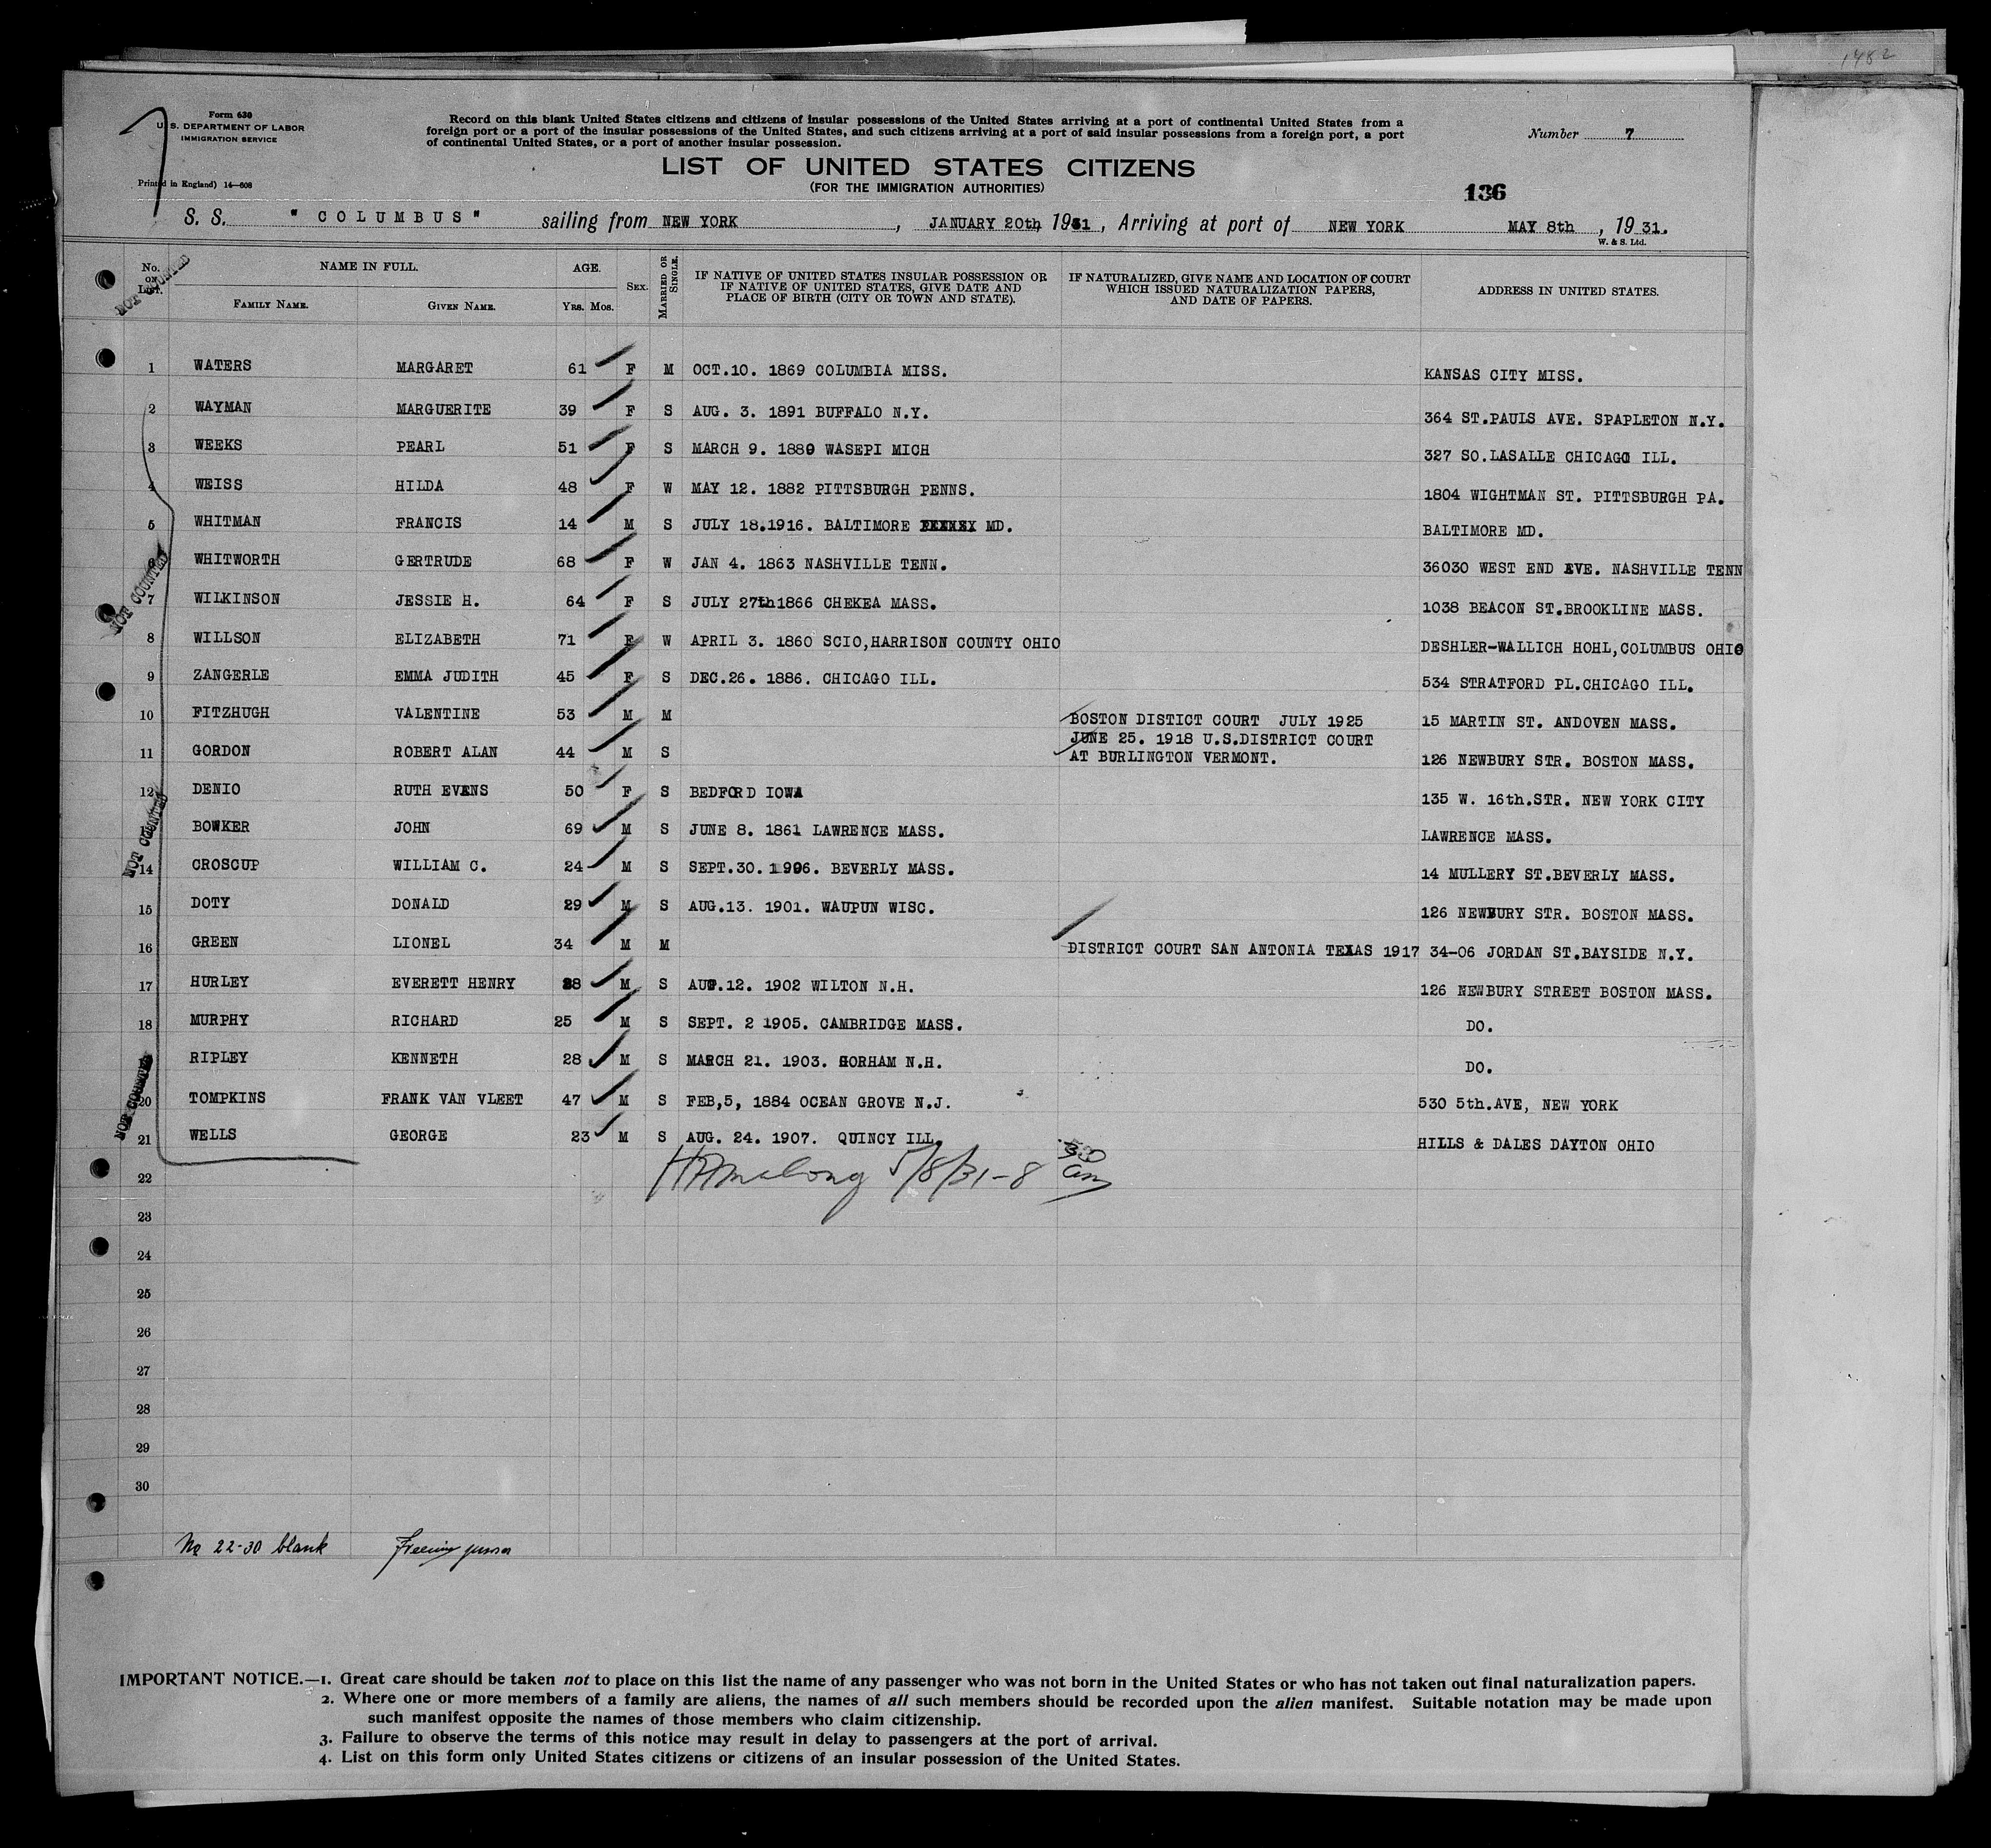 1482
Form 630
U. S. DEPARTMENT OF LABOR
IMMIGRATION SERVICE
Printed in England) 14—608
Record on this blank United States citizens and citizens of insular possessions of the United States arriving at a port of continental United States from a
foreign port or a port of the insular possessions of the United States, and such citizens arriving at a port of said insular possessions from a foreign port, a port
of continental United States, or a port of another insular possession.
Number 7
LIST OF UNITED STATES CITIZENS
(FOR THE IMMIGRATION AUTHORITIES)
136
S. S. " COLUMBUS " sailing from NEW YORK , JANUARY 20th, 1931 , Arriving at port of NEW YORK MAY 8th , 19 31.
W. & S. Ltd.
No. on List. NAME IN FULL. AGE. Sex. Married or Single. IF NATIVE OF UNITED STATES INSULAR POSSESSION OR IF NATIVE OF UNITED STATES, GIVE DATE AND PLACE OF BIRTH (CITY OR TOWN AND STATE). IF NATURALIZED, GIVE NAME AND LOCATION OF COURT WHICH ISSUED NATURALIZATION PAPERS, AND DATE OF PAPERS. ADDRESS IN UNITED STATES.
Family Name. Given Name. Yrs. Mos.
NOT COUNTED
1 WATERS MARGARET 61 F M OCT.10. 1869 COLUMBIA MISS. KANSAS CITY MISS.
2 WAYMAN MARGUERITE 39 F S AUG. 3. 1891 BUFFALO N.Y. 364 ST.PAULS AVE. SPAPLETON N.Y.
3 WEEKS PEARL 51 F S MARCH 9. 1880 WASEPI MICH 327 SO.LASALLE CHICAGO ILL.
4 WEISS HILDA 48 F W MAY 12. 1882 PITTSBURGH PENNS. 1804 WIGHTMAN ST. PITTSBURGH PA.
5 WHITMAN FRANCIS 14 M S JULY 18.1916. BALTIMORE MD. BALTIMORE MD.
6 WHITWORTH GERTRUDE 68 F W JAN 4. 1863 NASHVILLE TENN. 36030 WEST END AVE. NASHVILLE TENN
NOT COUNTED
7 WILKINSON JESSIE H. 64 F S JULY 27th1866 CHEKEA MASS. 1038 BEACON ST.BROOKLINE MASS.
8 WILLSON ELIZABETH 71 F W APRIL 3. 1860 SCIO,HARRISON COUNTY OHIO DESHLER-WALLICH HOHL,COLUMBUS OHIO
9 ZANGERLE EMMA JUDITH 45 F S DEC.26. 1886. CHICAGO ILL. 534 STRATFORD PL.CHICAGO ILL.
10 FITZHUGH VALENTINE 53 M M BOSTON DISTICT COURT JULY 1925 15 MARTIN ST. ANDOVEN MASS.
11 GORDON ROBERT ALAN 44 M S JUNE 25. 1918 U.S.DISTRICT COURT AT BURLINGTON VERMONT. 126 NEWBURY STR. BOSTON MASS.
12 DENIO RUTH EVANS 50 F S BEDFORD IOWA 135 W. 16th.STR. NEW YORK CITY
13 BOWKER JOHN 69 M S JUNE 8. 1861 LAWRENCE MASS. LAWRENCE MASS.
NOT COUNTED
14 CROSCUP WILLIAM C. 24 M S SEPT.30. 1906. BEVERLY MASS. 14 MULLERY ST.BEVERLY MASS.
15 DOTY DONALD 29 M S AUG.13. 1901. WAUPUN WISC. 126 NEWBURY STR. BOSTON MASS.
16 GREEN LIONEL 34 M M DISTRICT COURT SAN ANTONIA TEXAS 1917 34-06 JORDAN ST.BAYSIDE N.Y.
17 HURLEY EVERETT HENRY 28 M S AUG.12. 1902 WILTON N.H. 126 NEWBURY STREET BOSTON MASS.
18 MURPHY RICHARD 25 M S SEPT. 2 1905. CAMBRIDGE MASS. DO.
19 RIPLEY KENNETH 28 M S MARCH 21. 1903. GORHAM N.H. DO.
NOT COUNTED
20 TOMPKINS FRANK VAN VLEET 47 M S FEB,5, 1884 OCEAN GROVE N.J. 530 5th.AVE, NEW YORK
21 WELLS GEORGE 23 M S AUG. 24. 1907. QUINCY ILL. HILLS & DALES DAYTON OHIO
22 5/8/31-8 30 am
23
24
25
26
27
28
29
30
No 22-30 blank
IMPORTANT NOTICE.—1. Great care should be taken not to place on this list the name of any passenger who was not born in the United States or who has not taken out final naturalization papers.
2. Where one or more members of a family are aliens, the names of all such members should be recorded upon the alien manifest. Suitable notation may be made upon
such manifest opposite the names of those members who claim citizenship.
3. Failure to observe the terms of this notice may result in delay to passengers at the port of arrival.
4. List on this form only United States citizens or citizens of an insular possession of the United States.